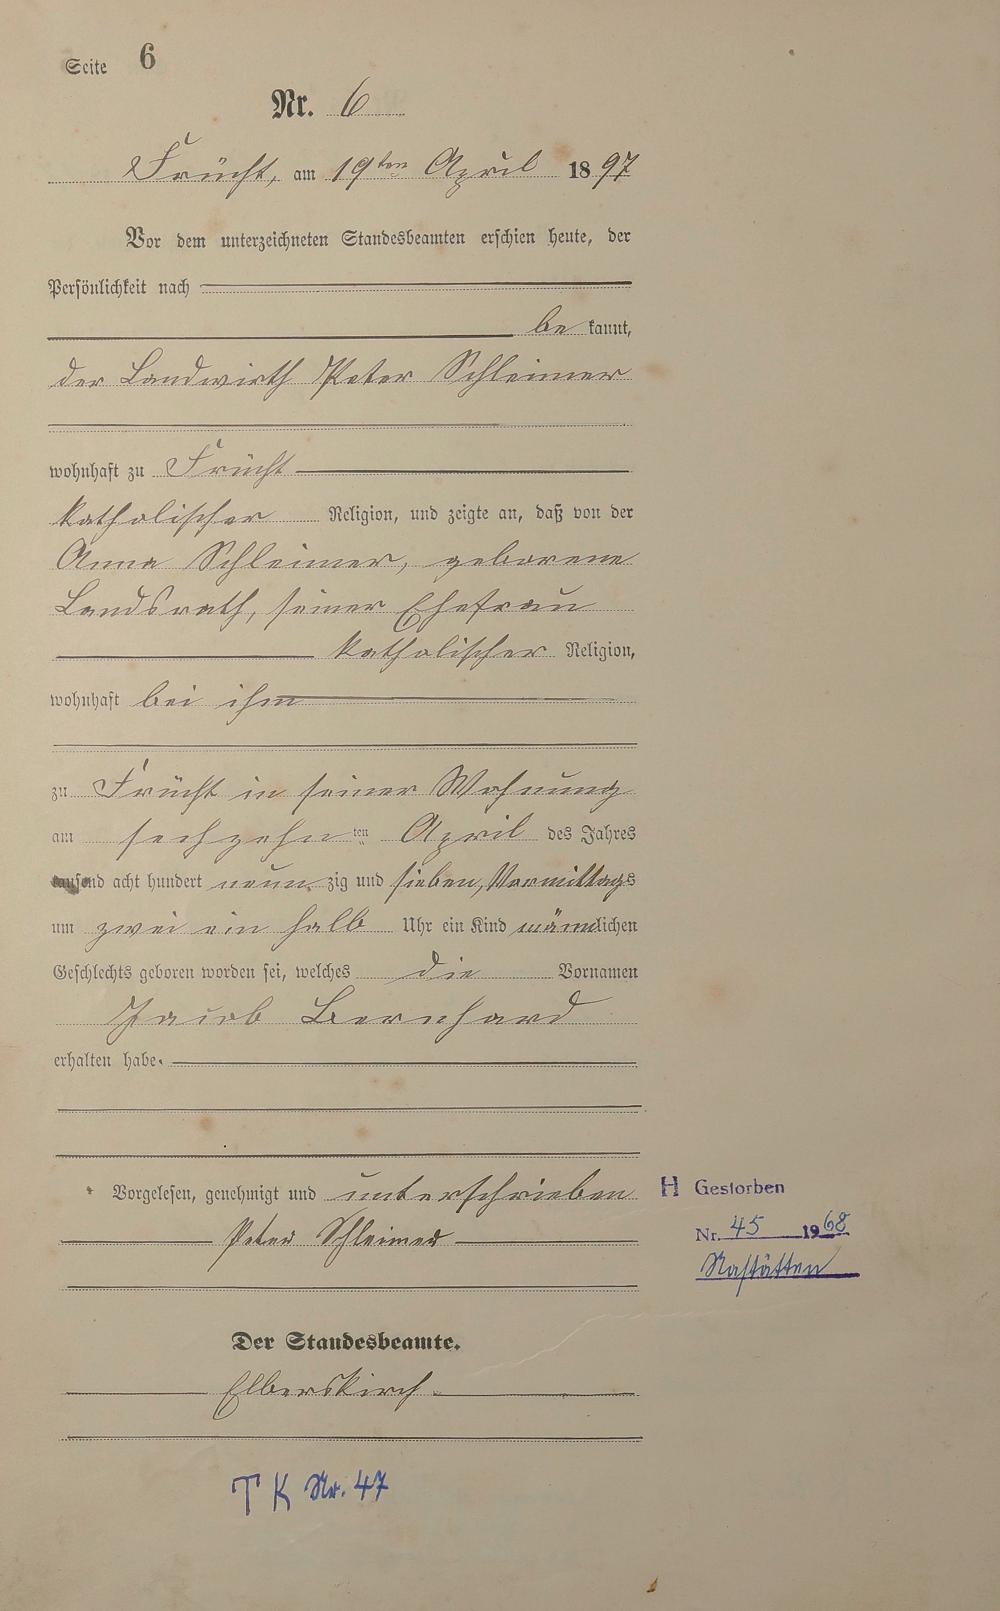 Seite 6
Nr. 6
Frücht, am 19ten April 1897
Vor dem unterzeichneten Standesbeamten erschien heute, der
Persönlichkeit nach
be kannt,
der Landwirth Peter Schleimer
wohnhaft zu Frücht
katholischer Religion, und zeigte an, daß von der
Anna Schleimer, geborene
Landsrath, seiner Ehefrau
katholischer Religion,
wohnhaft bei ihm
zu Frücht in seiner Wohnung
am sechzehnten April des Jahres
tausend acht hundert neun zig und sieben, Vormittags
um zwei ein halb Uhr ein Kind männlichen
Geschlechts geboren worden sei, welches die Vornamen
Jacob Bernhard
erhalten habe.
Vorgelesen, genehmigt und unterschrieben
Peter Schleimer
H Gestorben
Nr. 45 1968
Nastätten
Der Standesbeamte.
Elberskirch
TK Nr. 47